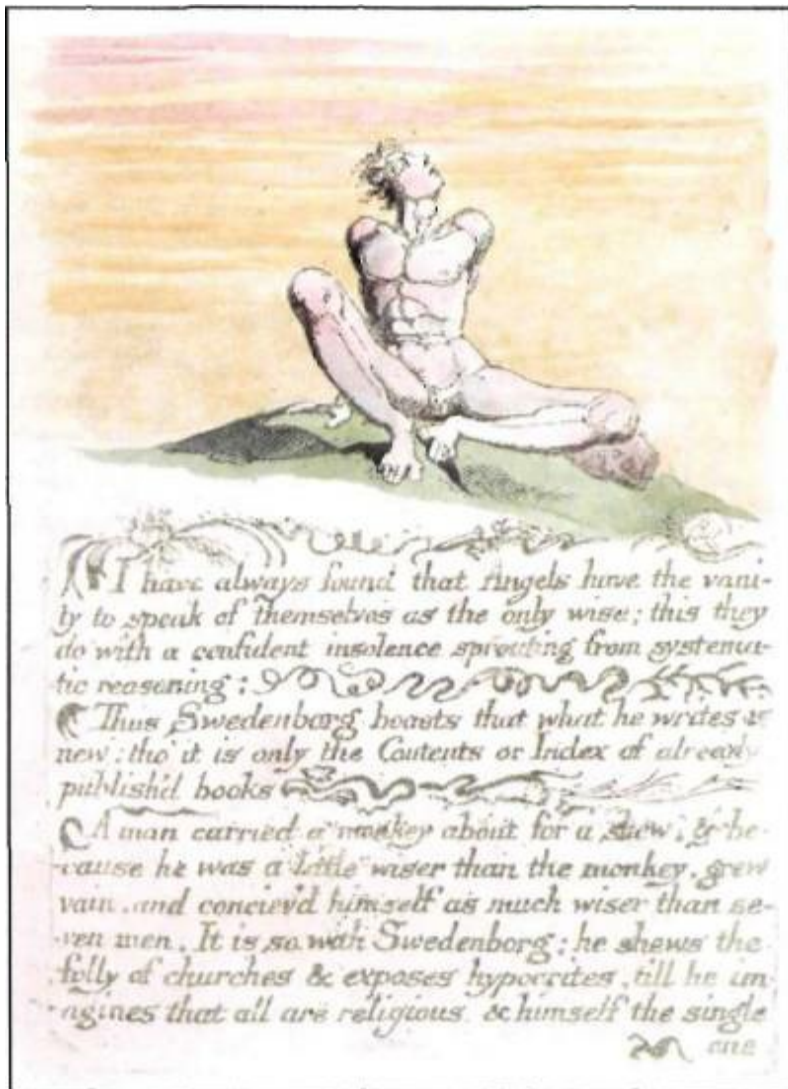 I have always found that Angels have the vani-
ty to speak of themselves as the only wise; this they
do with a confident insolence sprouting from systema-
tic reasoning:
Thus Swedenborg boasts that what he writes is
new: tho' it is only the Contents or Index of already
publish'd books
A man carried a monkey about for a shew, & be-
cause he was a little wiser than the monkey, grew
vain, and conciev'd himself as much wiser than se-
ven men. It is so with Swedenborg: he shews the
folly of churches & exposes hypocrites, till he im-
agines that all are religious. & himself the single
one